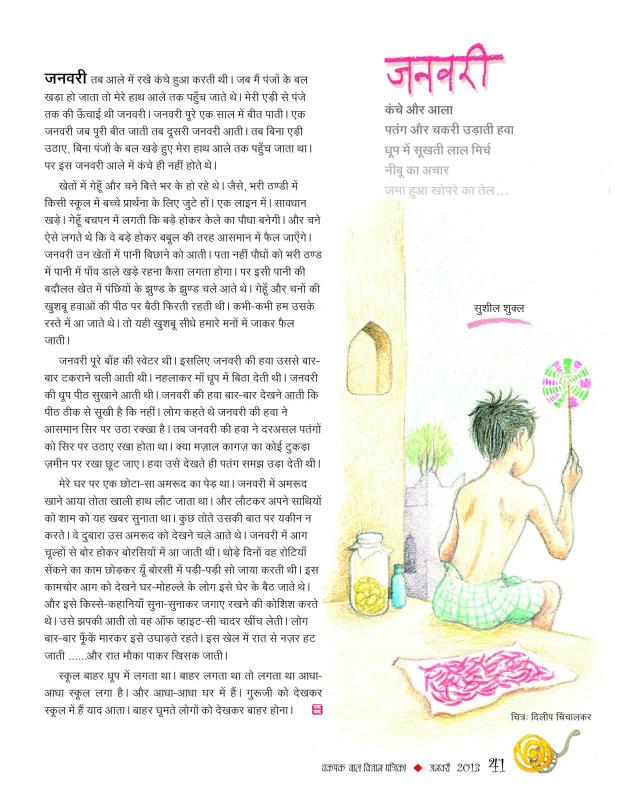 जनवरी
कंचे और आला
पतंग और चकरी उड़ाती हवा
धूप में सूखती लाल मिर्च
नीबू का अचार
जमा हुआ खोपरे का तेल...
सुशील शुक्ल
जनवरी तब आले में रखे कंचे हुआ करती थी। जब मैं पंजों के बल
खड़ा हो जाता तो मेरे हाथ आले तक पहुँच जाते थे। मेरी एड़ी से पंजे
तक की ऊँचाई थी जनवरी। जनवरी पूरे एक साल में बीत पाती। एक
जनवरी जब पूरी बीत जाती तब दूसरी जनवरी आती। तब बिना एड़ी
उठाए, बिना पंजों के बल खड़े हुए मेरा हाथ आले तक पहुँच जाता था।
पर इस जनवरी आले में कंचे ही नहीं होते थे।
खेतों में गेहूँ और चने बित्ते भर के हो रहे थे। जैसे, भरी ठण्डी में
किसी स्कूल में बच्चे प्रार्थना के लिए जुटे हों। एक लाइन में। सावधान
खड़े। गेहूँ बचपन में लगती कि बड़े होकर केले का पौधा बनेगी। और चने
ऐसे लगते थे कि वे बड़े होकर बबूल की तरह आसमान में फैल जाएँगे।
जनवरी उन खेतों में पानी बिछाने को आती। पता नहीं पौधों को भरी ठण्ड
में पानी में पाँव डाले खड़े रहना कैसा लगता होगा। पर इसी पानी की
बदौलत खेत में पंछियों के झुण्ड के झुण्ड चले आते थे। गेहूँ और चनों की
खुशबू हवाओं की पीठ पर बैठी फिरती रहती थी। कभी-कभी हम उसके
रस्ते में आ जाते थे। तो यही खुशबू सीधे हमारे मनों में जाकर फैल
जाती।
जनवरी पूरे बाँह की स्वेटर थी। इसलिए जनवरी की हवा उससे बार-
बार टकराने चली आती थी। नहलाकर माँ धूप में बिठा देती थी। जनवरी
की धूप पीठ सुखाने आती थी। जनवरी की हवा बार-बार देखने आती कि
पीठ ठीक से सूखी है कि नहीं। लोग कहते थे जनवरी की हवा ने
आसमान सिर पर उठा रक्खा है। तब जनवरी की हवा ने दरअसल पतंगों
को सिर पर उठाए रखा होता था। क्या मज़ाल कागज़ का कोई टुकड़ा
ज़मीन पर रखा छूट जाए। हवा उसे देखते ही पतंग समझ उड़ा देती थी।
मेरे घर पर एक छोटा-सा अमरूद का पेड़ था। जनवरी में अमरूद
खाने आया तोता खाली हाथ लौट जाता था। और लौटकर अपने साथियों
को शाम को यह खबर सुनाता था। कुछ तोते उसकी बात पर यकीन न
करते। वे दुबारा उस अमरूद को देखने चले आते थे। जनवरी में आग
चूल्हों से बोर होकर बोरसियों में आ जाती थी। थोड़े दिनों वह रोटियाँ
सेंकने का काम छोड़कर यूँ बोरसी में पड़ी-पड़ी सो जाया करती थी। इस
कामचोर आग को देखने घर-मोहल्ले के लोग इसे घेर के बैठ जाते थे।
और इसे किस्से-कहानियाँ सुना-सुनाकर जगाए रखने की कोशिश करते
थे। उसे झपकी आती तो वह ऑफ व्हाइट-सी चादर खींच लेती। लोग
बार-बार फूँकें मारकर इसे उघाड़ते रहते। इस खेल में रात से नज़र हट
जाती ......और रात मौका पाकर खिसक जाती।
स्कूल बाहर धूप में लगता था। बाहर लगता था तो लगता था आधा-
आधा स्कूल लगा है। और आधा-आधा घर में हैं। गुरूजी को देखकर
स्कूल में हैं याद आता। बाहर घूमते लोगों को देखकर बाहर होना।
चित्र: दिलीप चिंचालकर
चकमक बाल विज्ञान पत्रिका ◆ जनवरी 2013 41